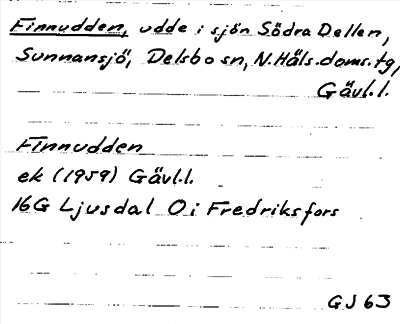 Finnudden, udde i sjön Södra Dellen,
Sunnansjö, Delsbo sn, N.Häls.doms.tg,
Gävl.l.
Finnudden
ek (1959) Gävl.l.
16G Ljusdal O i Fredriksfors
GJ 63